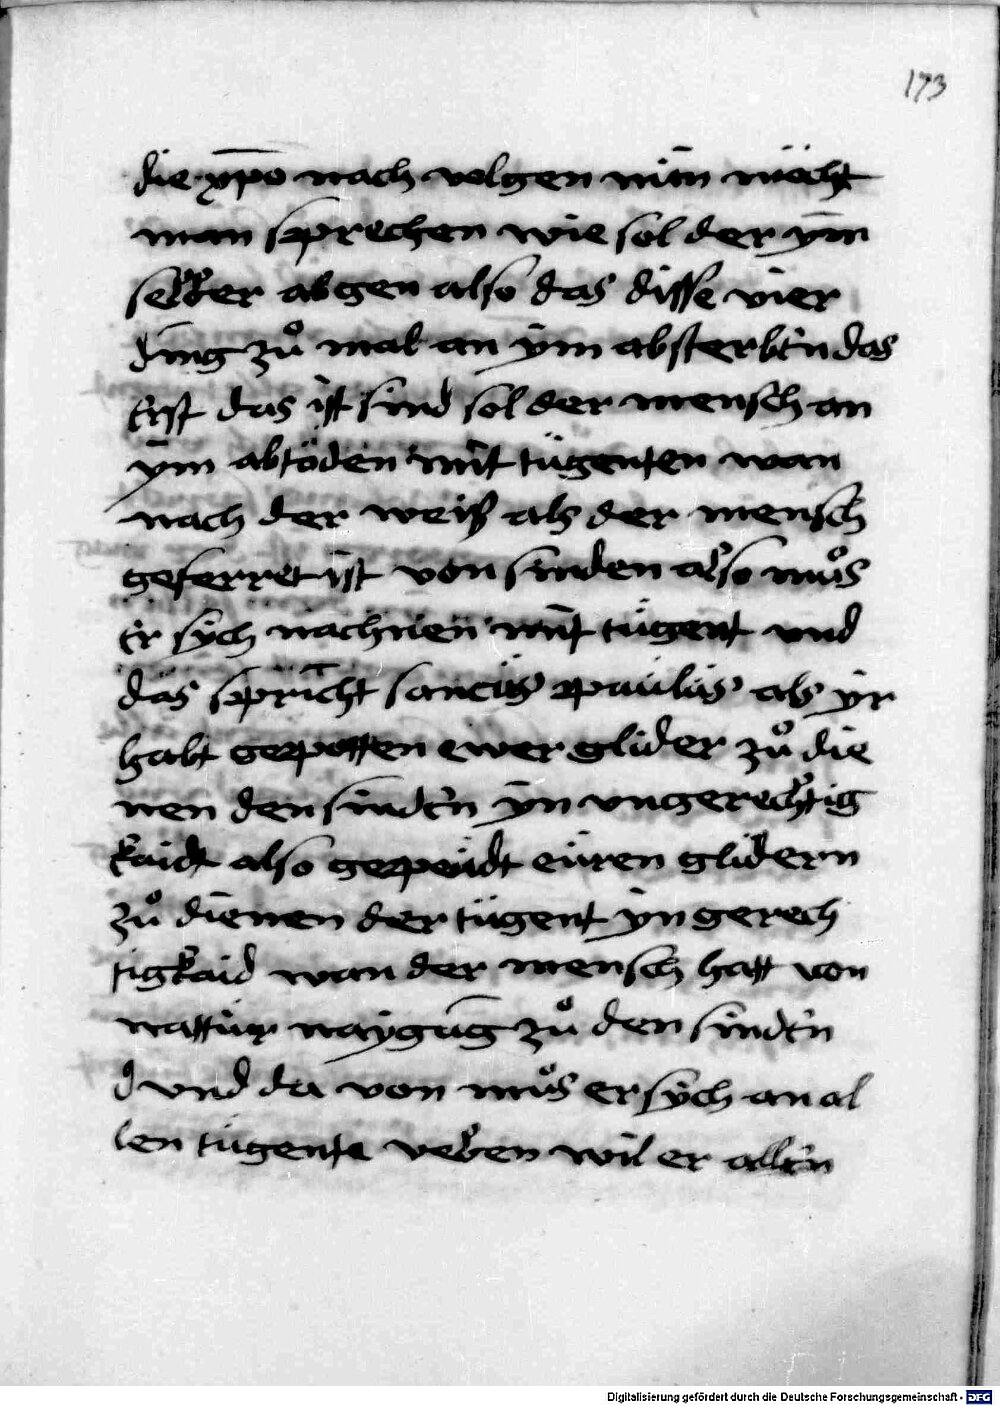 173
die xp̄o nach volgen nūn möcht
man sprechen wie sol der ȳm
selber abgen also das disse vier
dīng zů mal an ẏm absterbēn das
erst das ist sünd sol der mensch an
ẏm abtöden mit tügenten wan
nach der weiß als der mensch
geferret ist von sünden also můs
er sych nachnen mit tügent und
das spricht sanctüs paulüs als yr
habt gepotten ewer glider zů die
nen den sündēn ẏn vngerechtig
kaidt also gepeüdt eüren glidern
zů dienen der tügent ẏn gerech
tigkaid wan der mensch hatt von
nattür naygūg zů den sündēn
d vnd da von můs er sych an al
len tügente veben wil er allēn
Digitalisierung gefördert durch die Deutsche Forschungsgemeinschaft - DFG